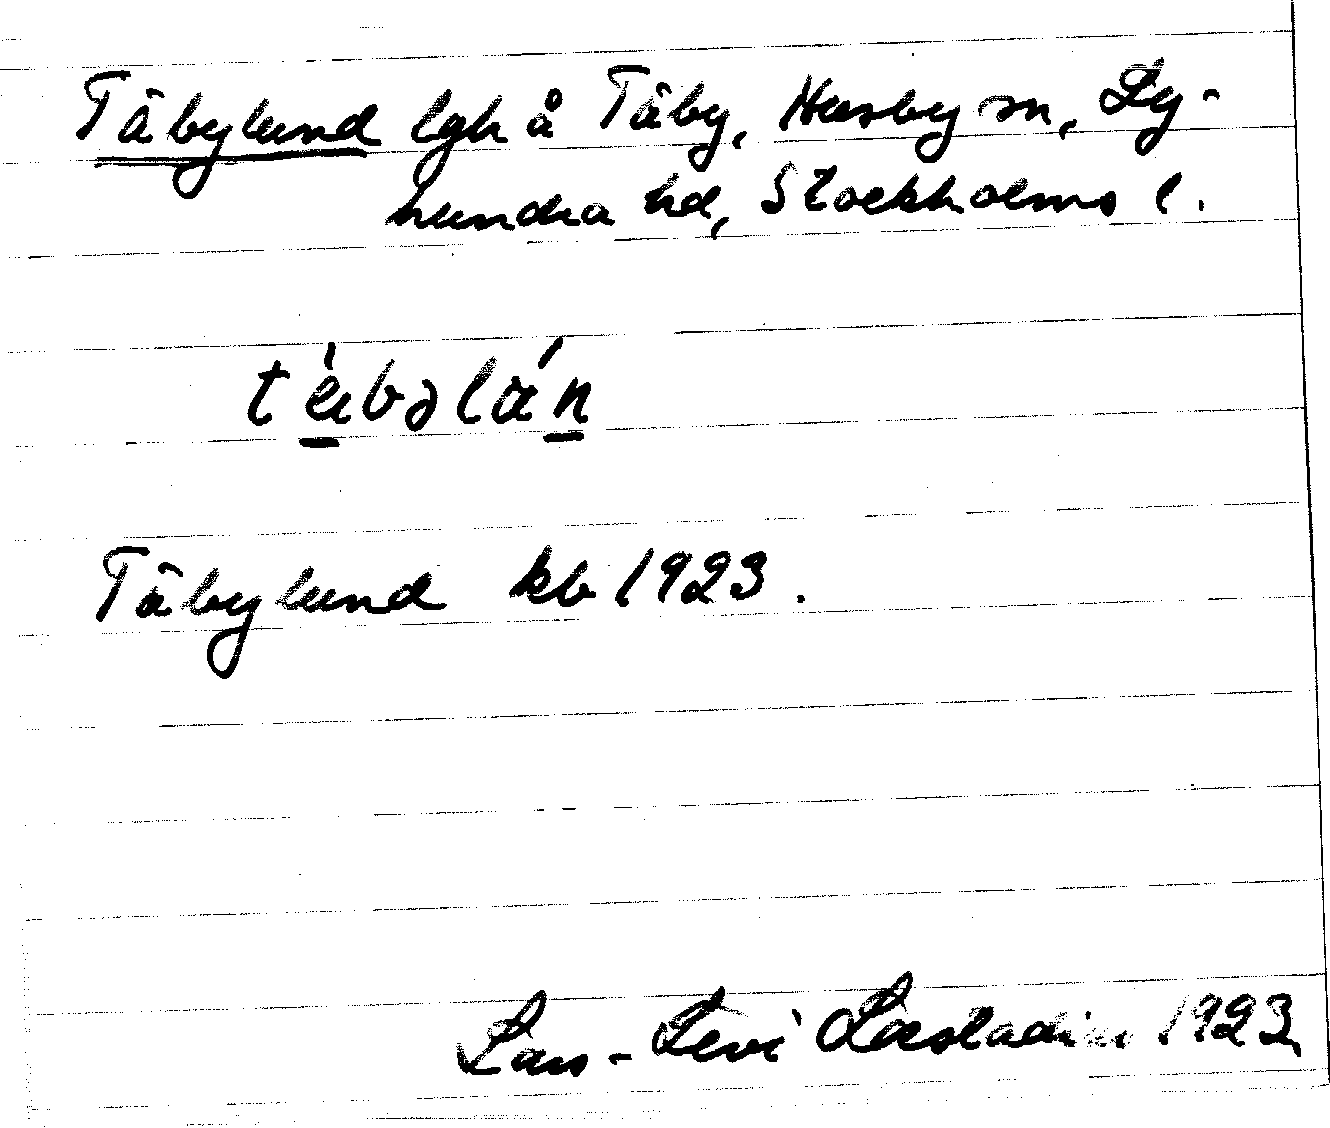 Täbylund lgh å Täby, Husby sn, Ly-
hundra hd, Stockholms l.
Täbylund kb 1923.
Lars-Levi Læstadius 1923